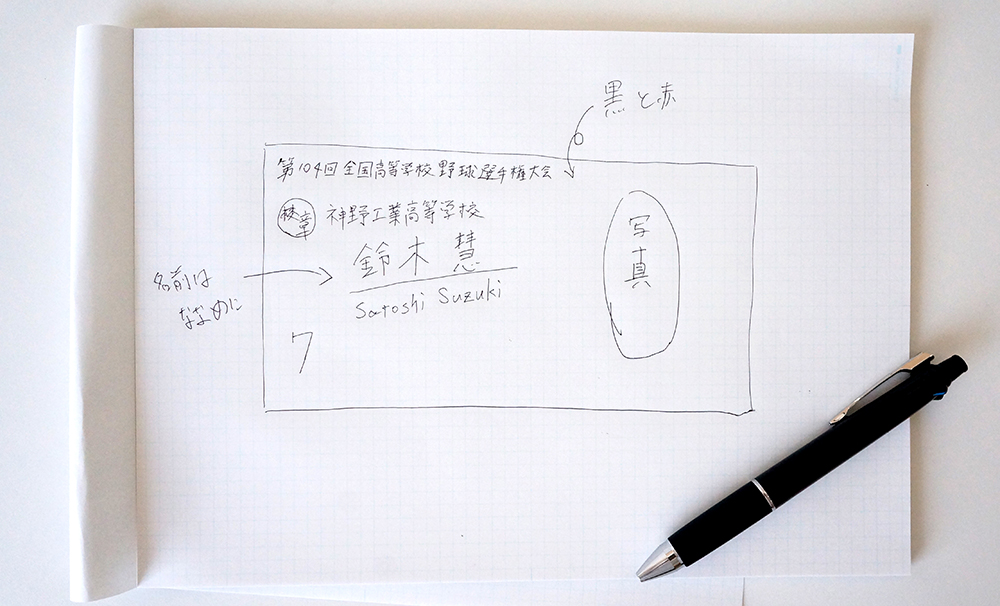 黒と赤
第104回全国高等学校野球選手権大会
校章
神野工業高等学校
鈴木 慧
Satoshi Suzuki
名前は
ななめに
7
写真